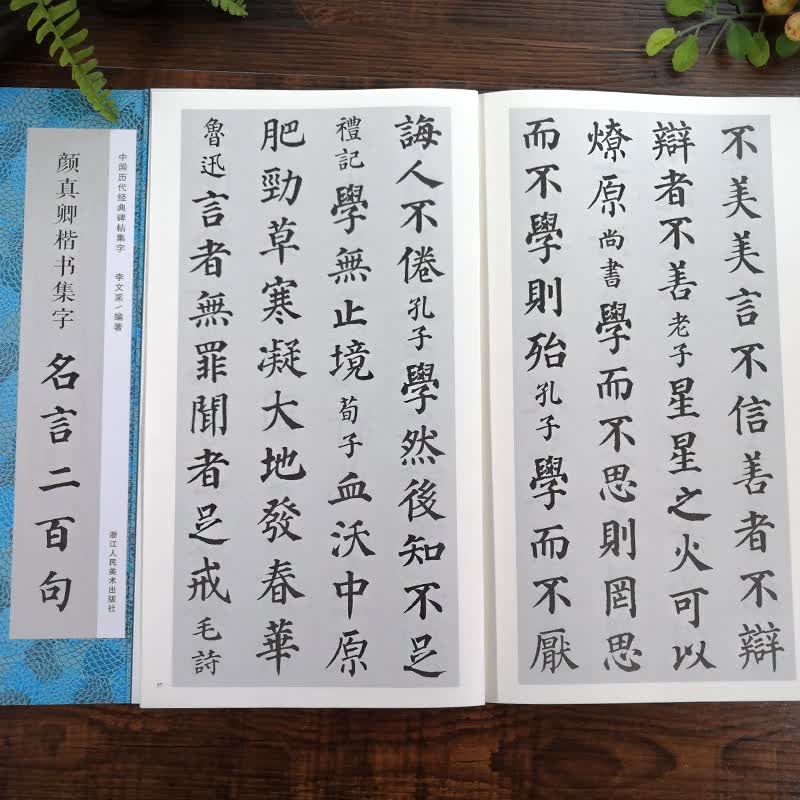 不美美言不信善者不辯
辯者不善老子星星之火可以
燎原尚書學而不思則罔思
而不學則殆孔子學而不厭
誨人不倦孔子學然後知不足
禮記學無止境荀子血沃中原
肥勁草寒凝大地發春華
魯迅言者無罪聞者足戒毛詩
57
中国历代经典碑帖集字 李文采/编著
颜真卿楷书集字
名言二百句
浙江人民美术出版社